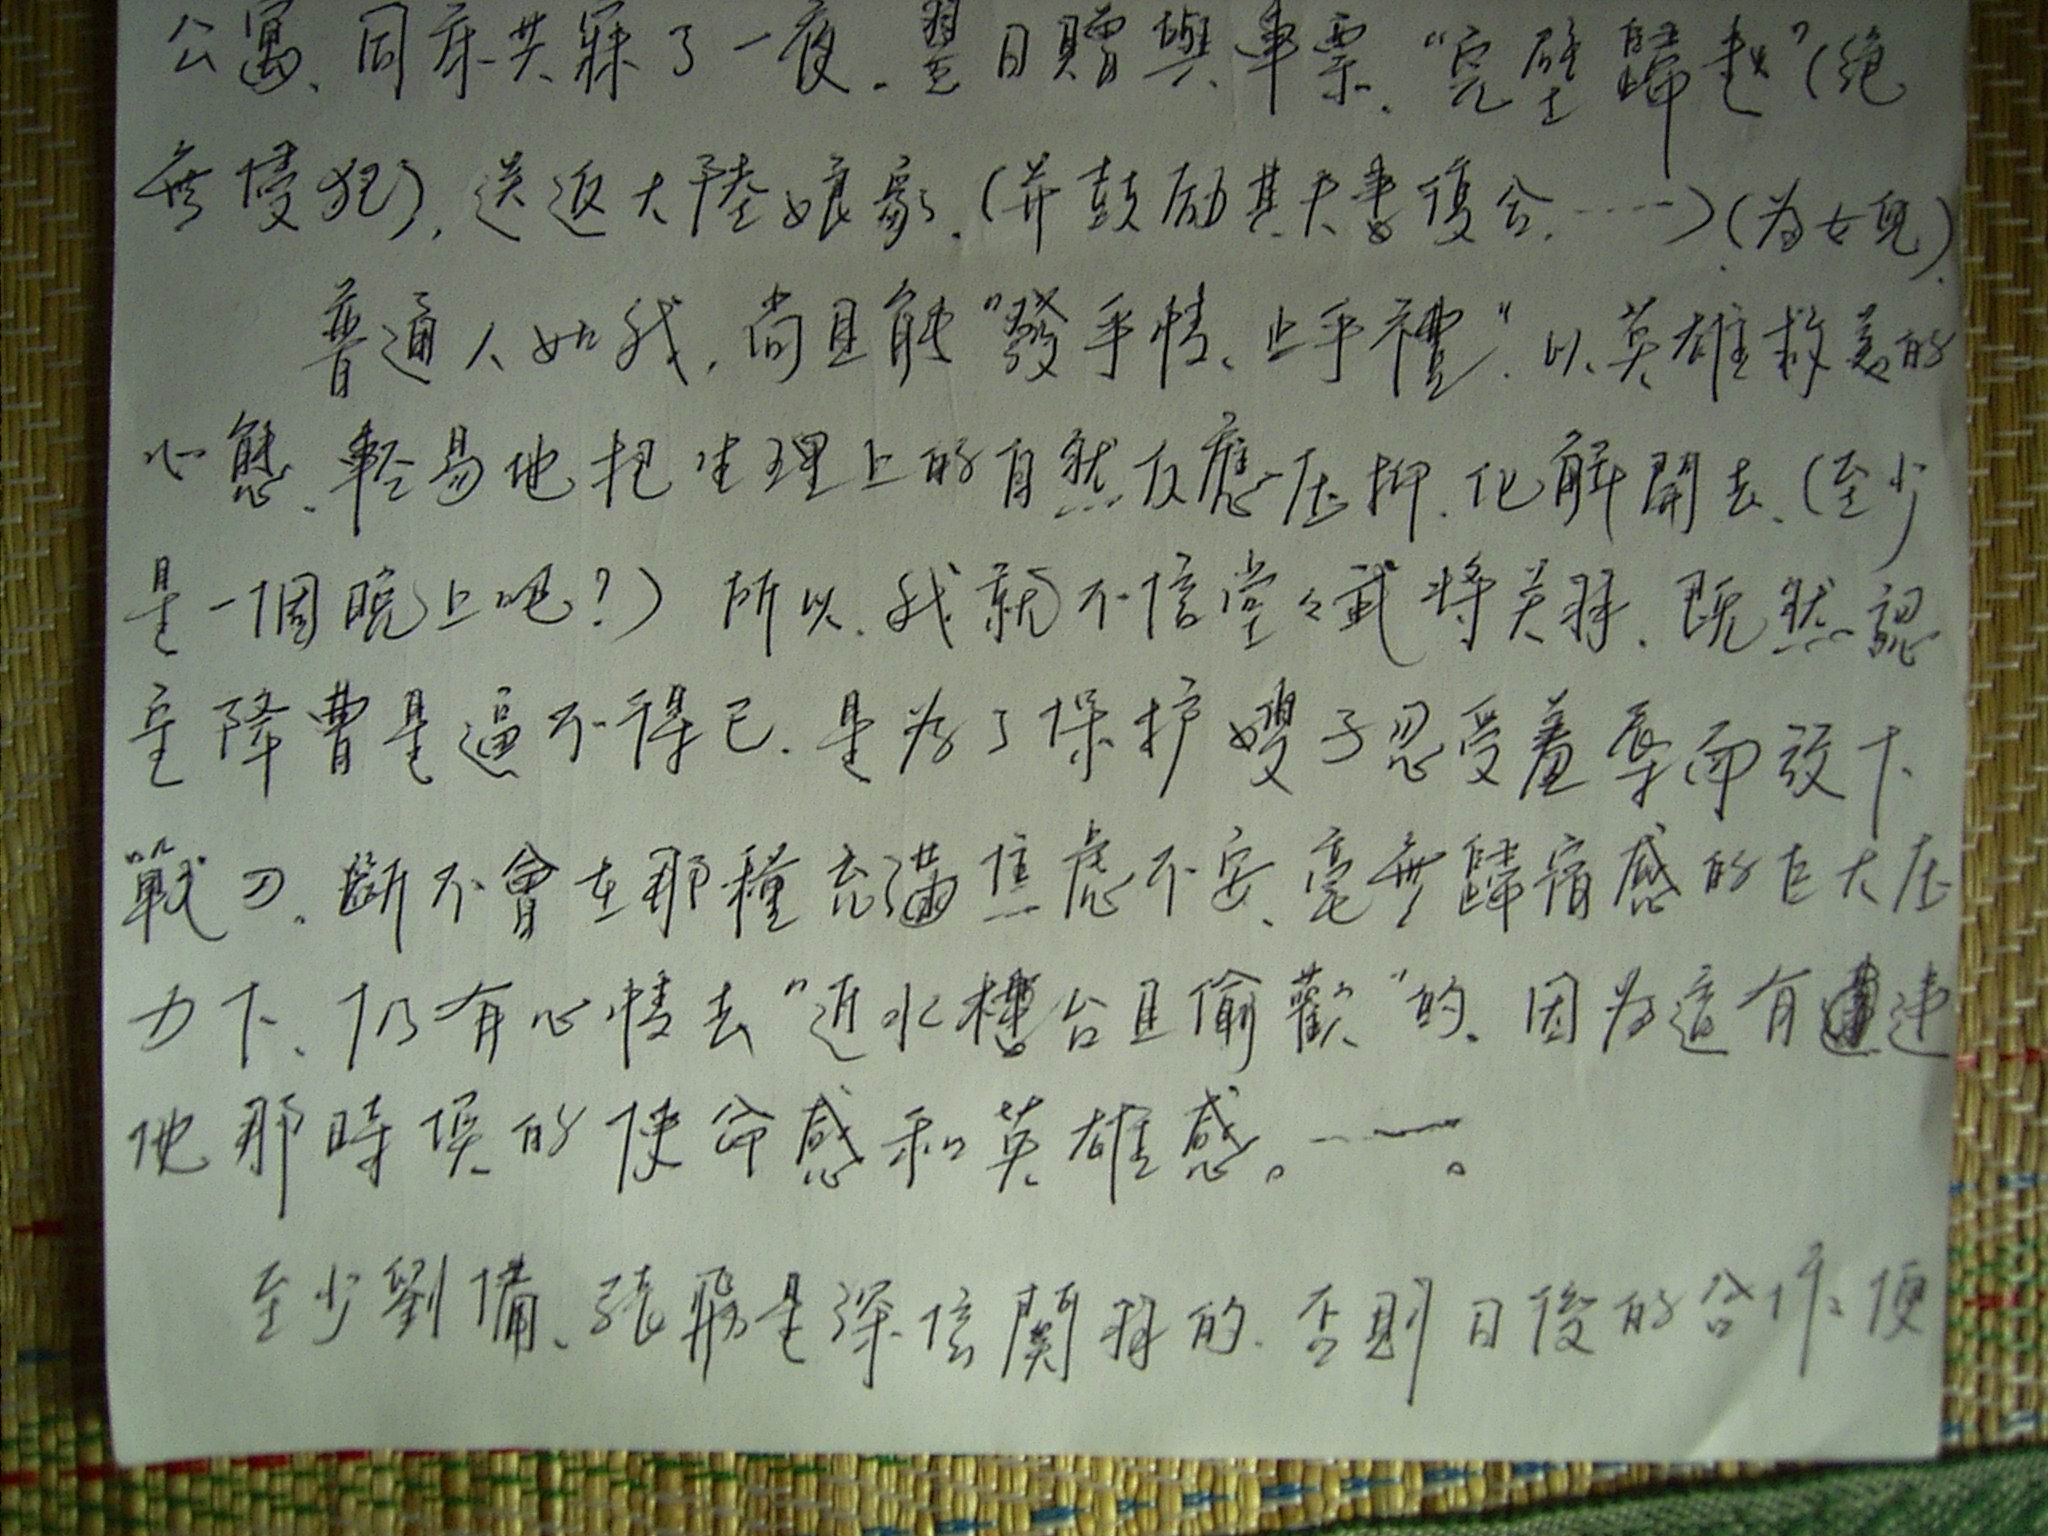 公寓、同床共寐了一夜。翌日贈與車票、"完璧歸趙"(絕
無侵犯)，送返大陸娘家。(并鼓励其夫妻復合……)(為女兒)、
普通人如我，尚且能"發乎情、止乎禮"．以英雄救美的
心態、輕易地把生理上的自然反應压抑、化解開去、(至少
是一個晚上吧？) 所以、我就不信堂々武將关羽、既然認
定降曹是逼不得已、是為了保护嫂子忍受羞辱而放下
戰刀、斷不會在那種充滿焦慮不安、毫無歸宿感的巨大压
力下、仍有心情去"近水樓台且偷歡"的、因為這有違
他那時候的使命感和英雄感。……。
至少劉備、張飛是深信關羽的、否則日後的合作、便